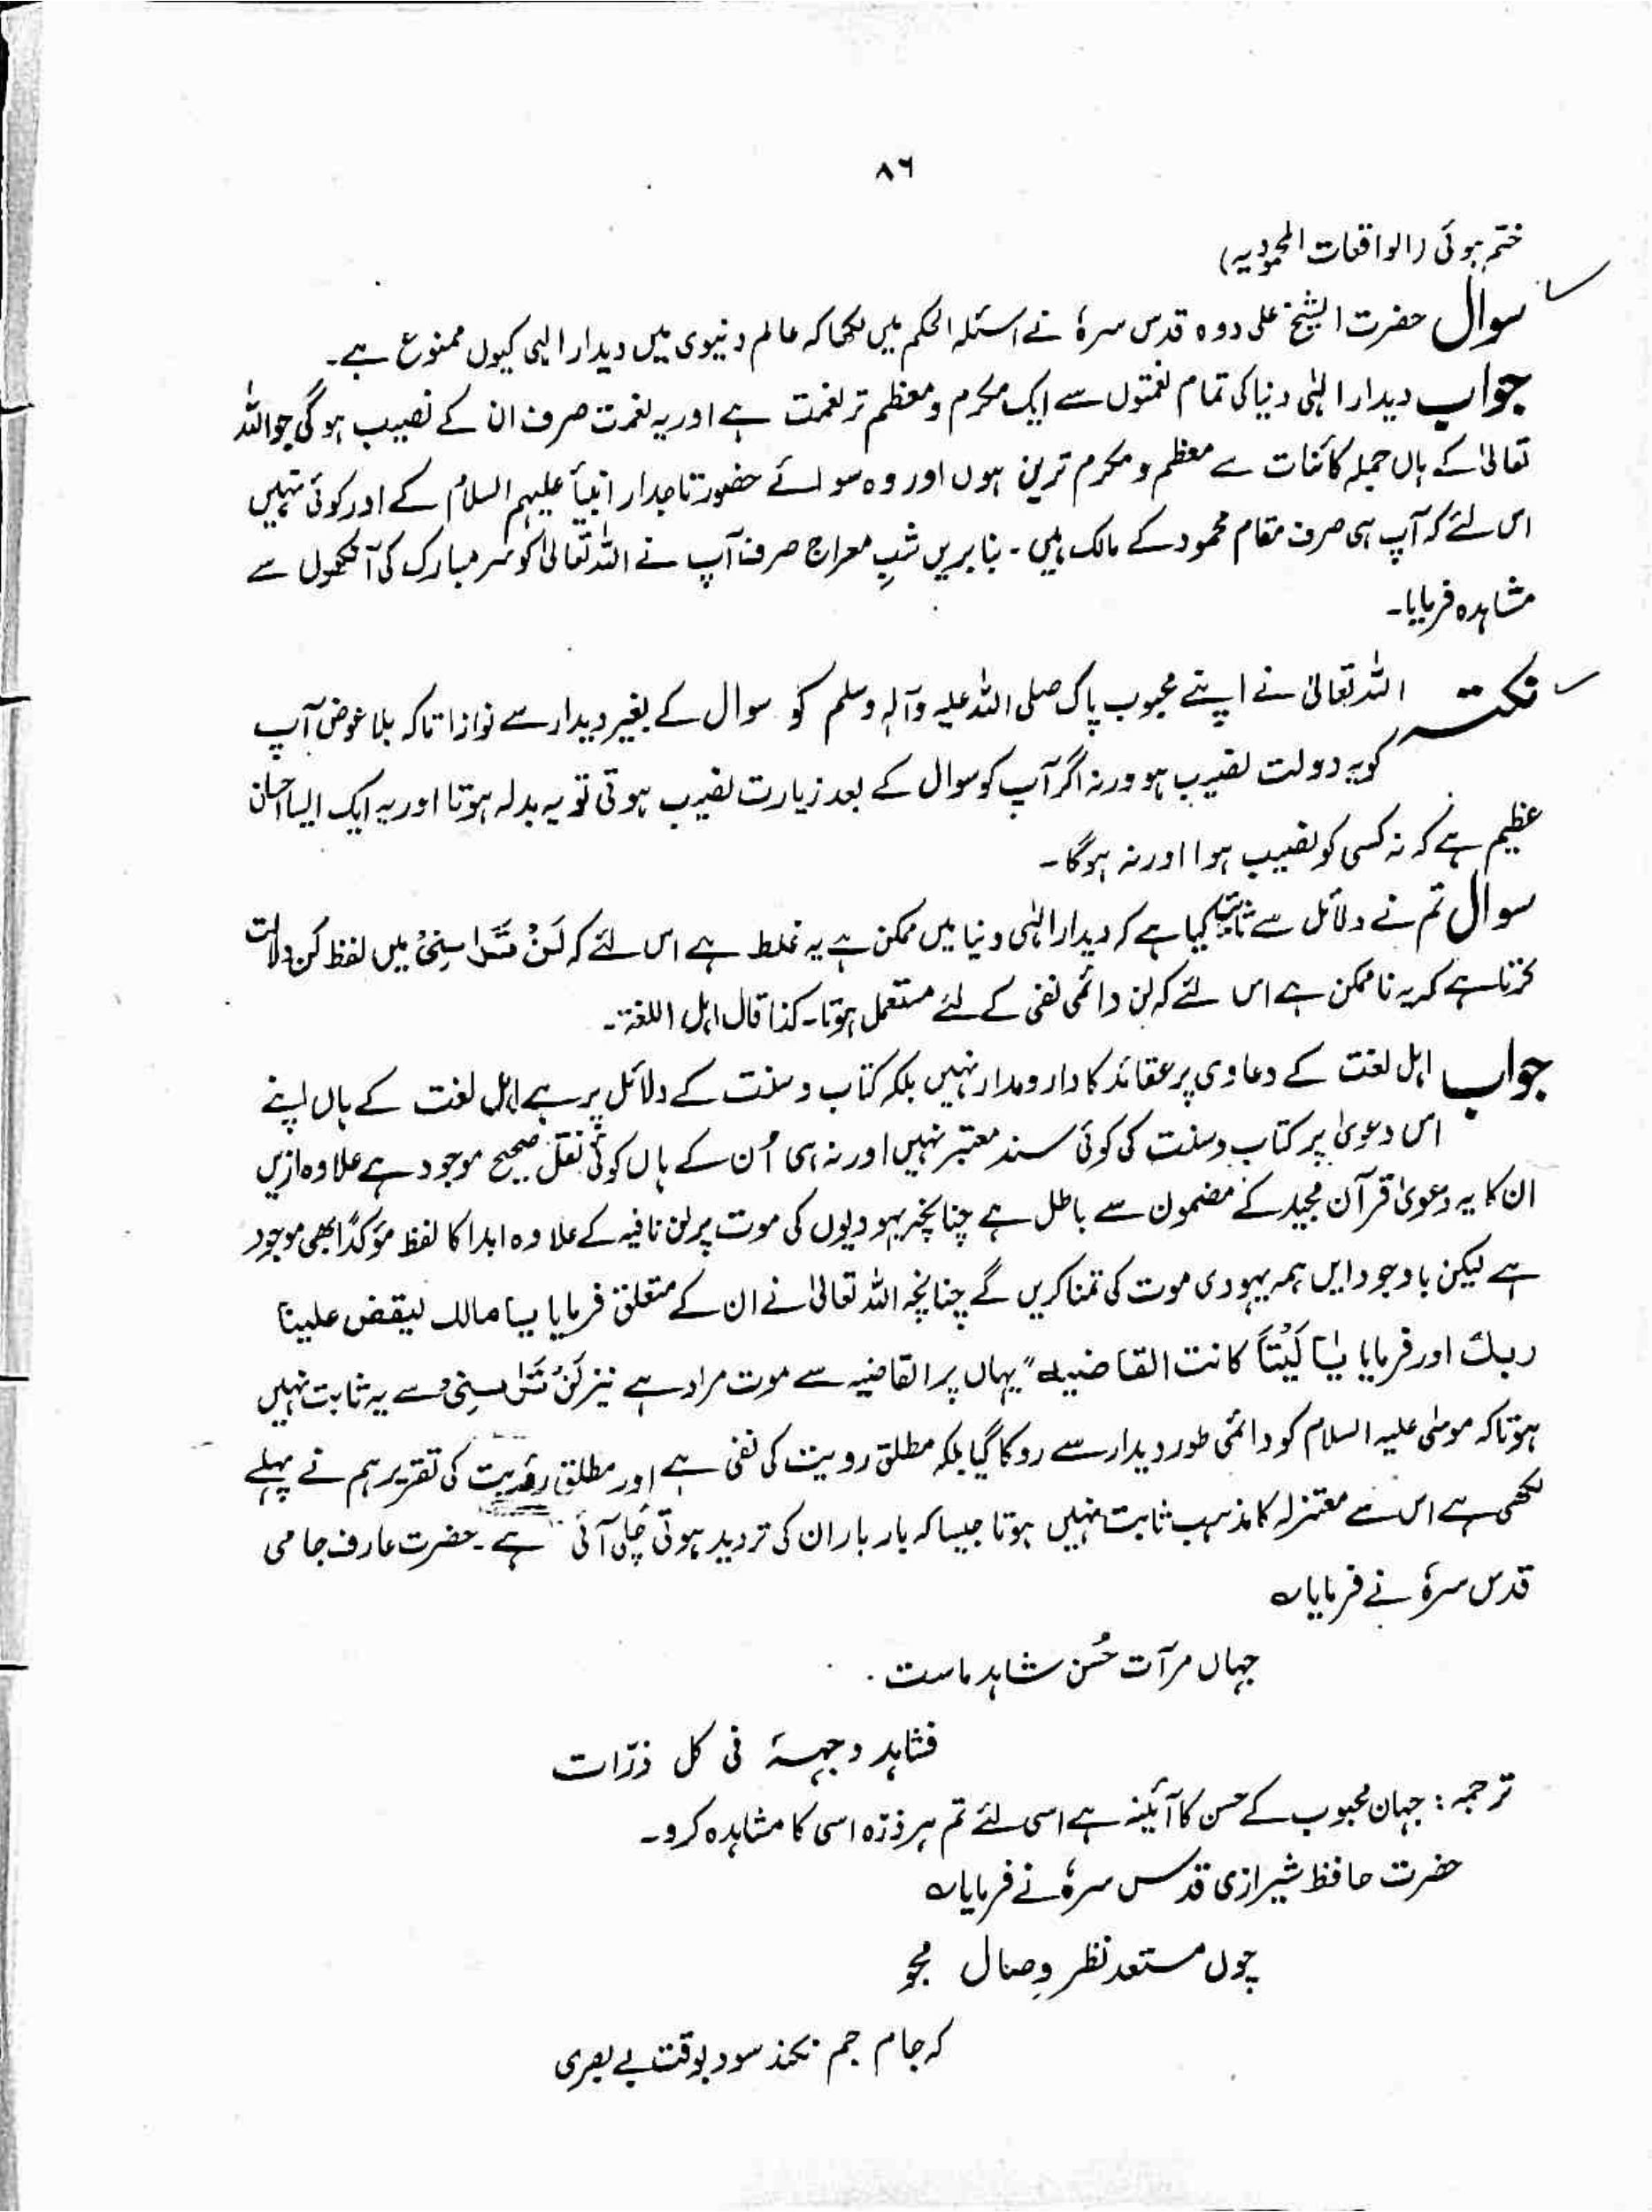 ۸۶
ختم ہوئی (الواقعات المحمودیہ)
سوال حضرت الشیخ علی دوہ قدس سرہٗ نے اسئلہ الحکم میں لکھا کہ عالم دنیوی میں دیدار الہی کیوں ممنوع ہے۔
جواب دیدار الہٰی دنیا کی تمام نعمتوں سے ایک مکرم و معظم تر نعمت ہے اور یہ نعمت صرف ان کے نصیب ہوگی جو اللہ
تعالیٰ کے ہاں جملہ کائنات سے معظم و مکرم ترین ہوں اور وہ سوائے حضور تاجدار انبیأ علیہم السلام کے اور کوئی نہیں
اس لئے کہ آپ ہی صرف مقام محمود کے مالک ہیں۔ بنا بریں شبِ معراج صرف آپ نے اللہ تعالیٰ کو سر مبارک کی آنکھوں سے
مشاہدہ فرمایا۔
نکتہ اللہ تعالیٰ نے اپنے محبوب پاک صلی اللہ علیہ وآلہٖ وسلم کو سوال کے بغیر دیدار سے نوازا تاکہ بلا عوض آپ
کو یہ دولت نصیب ہو ورنہ اگر آپ کو سوال کے بعد زیارت نصیب ہوتی تو یہ بدلہ ہوتا اور یہ ایک ایسا احسان
عظیم ہے کہ نہ کسی کو نصیب ہوا اور نہ ہوگا۔
سوال تم نے دلائل سے ثابت کیا ہے کہ دیدار الہٰی دنیا میں ممکن ہے یہ غلط ہے اس لئے کہ لَنْ تَرَانِیْ میں لفظ لن دلالت
کرتا ہے کہ یہ ناممکن ہے اس لئے کہ لن دائمی نفی کے لئے مستعمل ہوتا۔ کذا قال اہل اللغۃ۔
جواب اہل لغت کے دعاوی پر عقائد کا دارومدار نہیں بلکہ کتاب و سنت کے دلائل پر ہے اہل لغت کے ہاں اپنے
اس دعویٰ پر کتاب و سنت کی کوئی سند معتبر نہیں اور نہ ہی اُن کے ہاں کوئی نقل صحیح موجود ہے علاوہ ازیں
ان کا یہ دعویٰ قرآن مجید کے مضمون سے باطل ہے چنانچہ یہودیوں کی موت پر لن نافیہ کے علاوہ ابدا کا لفظ مؤکداً بھی موجود
ہے لیکن باوجود ایں ہمہ یہودی موت کی تمنا کریں گے چنانچہ اللہ تعالیٰ نے ان کے متعلق فرمایا یا مالک لیقض علینا
ربک اور فرمایا یٰا لَیْتَہَا کانت القاضیہ" یہاں پر القاضیہ سے موت مراد ہے نیز لَنْ تَرَانِیْ سے یہ ثابت نہیں
ہوتا کہ موسٰی علیہ السلام کو دائمی طور دیدار سے روکا گیا بلکہ مطلق رویت کی نفی ہے اور مطلق رؤیت کی تقریر ہم نے پہلے
لکھی ہے اس سے معتزلہ کا مذہب ثابت نہیں ہوتا جیسا کہ بار بار ان کی تردید ہوتی چلی آئی ہے۔ حضرت عارف جامی
قدس سرہٗ نے فرمایا؎
جہاں مرآت حُسن شاہد ماست
فشاہد وجہہٗ فی کل ذرّات
ترجمہ: جہان محبوب کے حسن کا آئینہ ہے اسی لئے تم ہر ذرّہ اسی کا مشاہدہ کرو۔
حضرت حافظ شیرازی قدس سرہٗ نے فرمایا؎
چوں مستعد نظر وِصال مجو
کہ جام جم نکند سود بوقت بے بصری